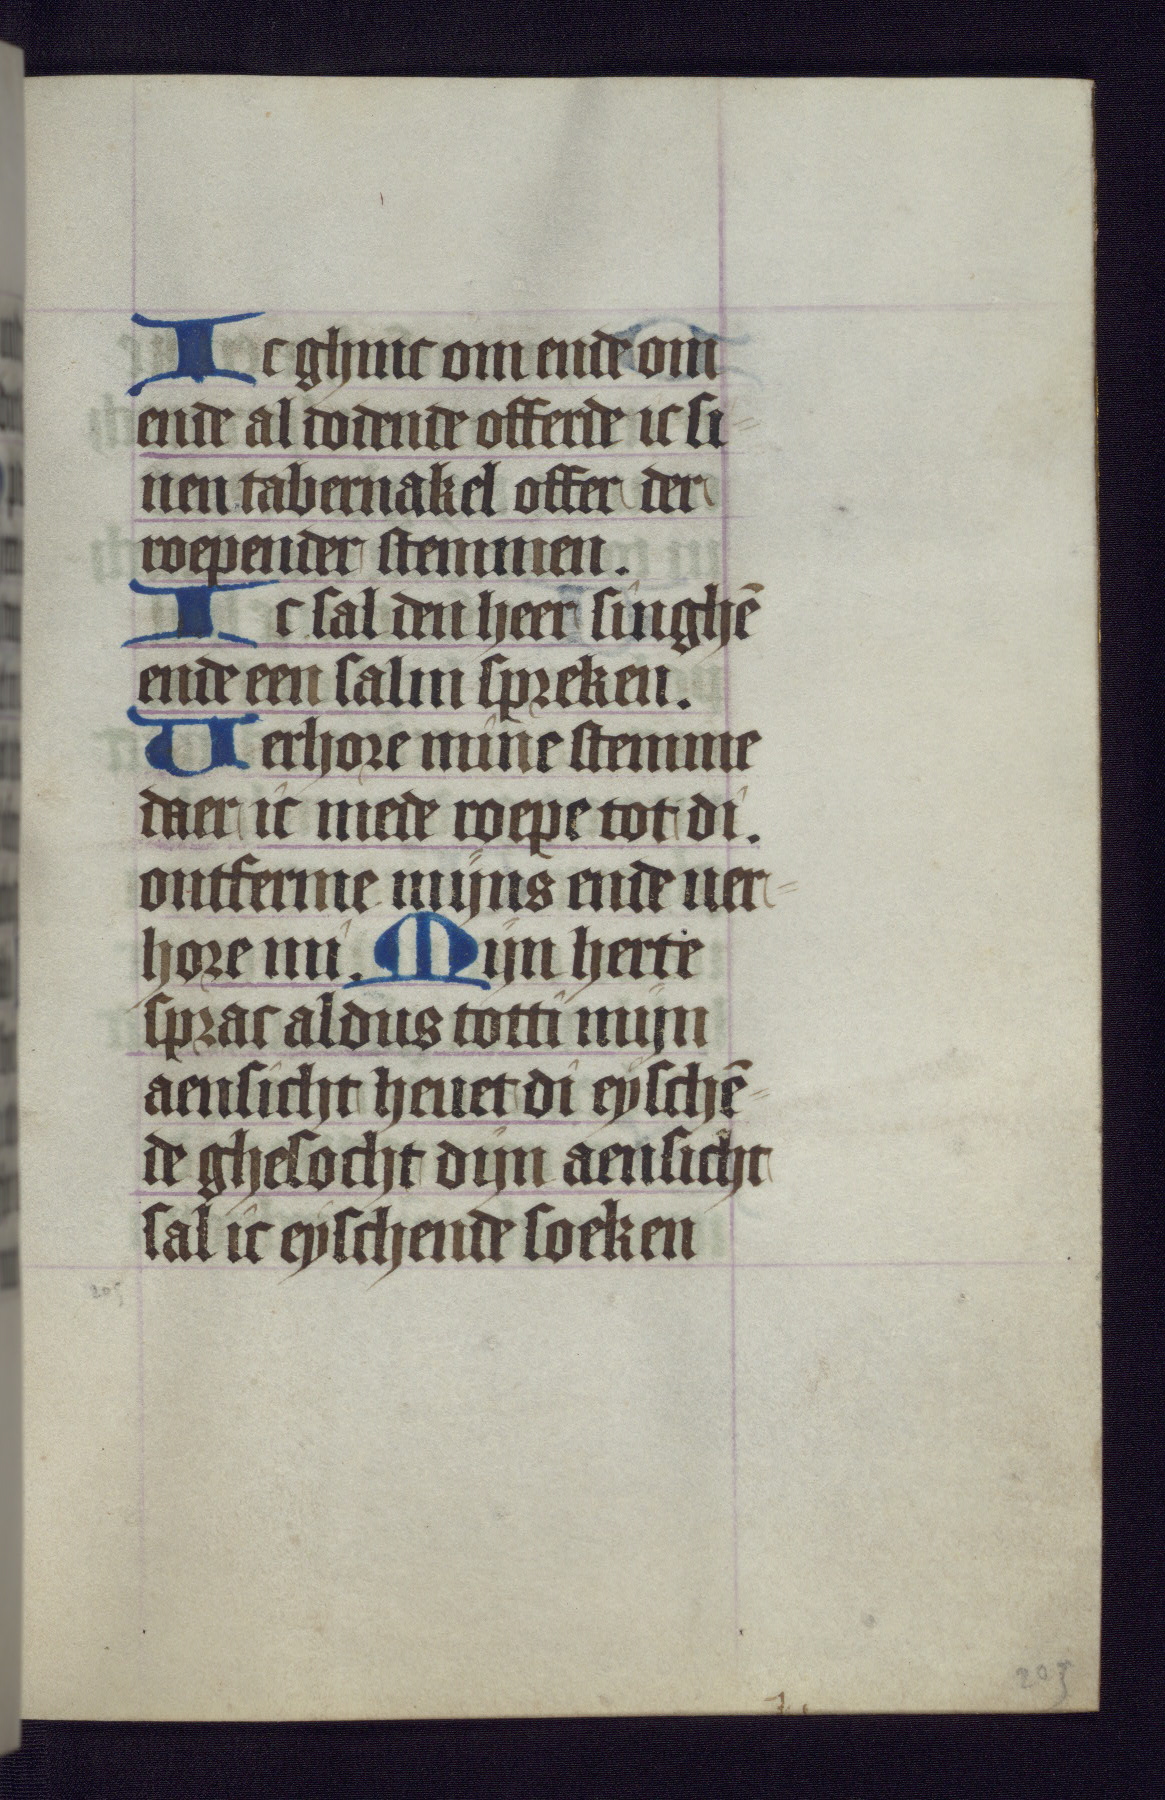 Ic ghinc om ende om
ende al dodende offerde ic si-
nen tabernakel offer der
roepender stemmen.
Ic sal den heer singhē
ende een salm spreken.
Uerhore mine stemme
daer ic mede roepe tot di.
ontferme mijns ende uer-
hore mi. Mijn herte
sprac aldus totti mijn
aensicht heuet di eyschē-
de ghesocht dijn aensicht
sal ic eyschende soeken
205
205